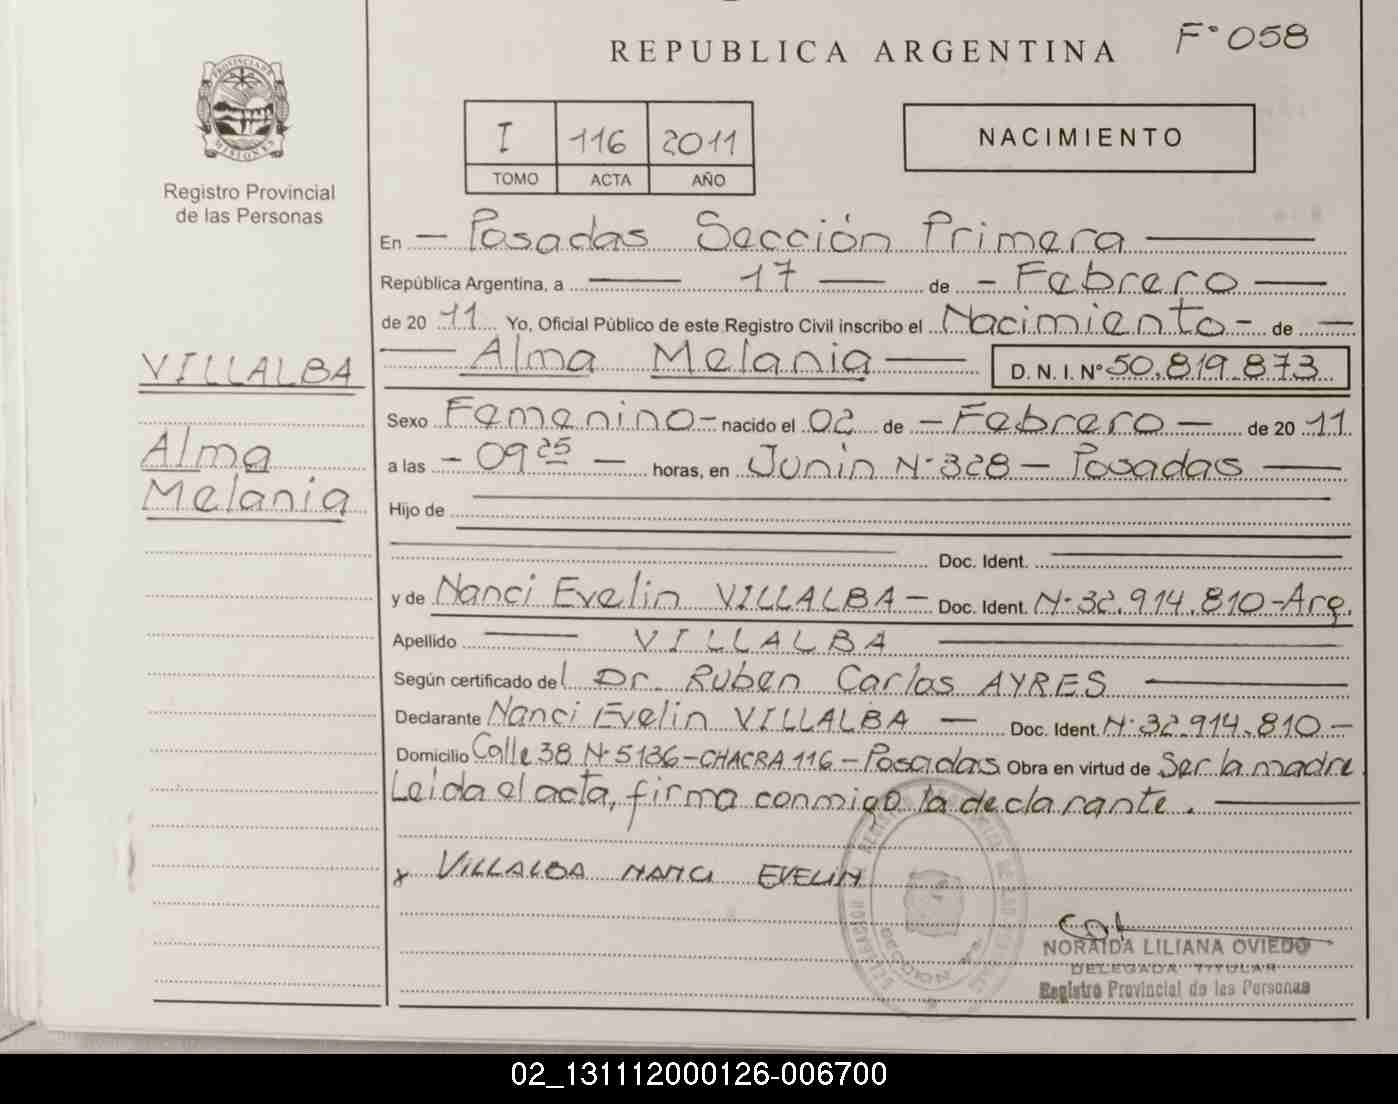 F° 058
REPUBLICA ARGENTINA
PROVINCIA DE
MISIONES
Registro Provincial
de las Personas
I 116 2011
TOMO ACTA AÑO
NACIMIENTO
En — Posadas Sección Primera —
República Argentina, a — 17 — de — Febrero —
de 20 11 Yo, Oficial Público de este Registro Civil inscribo el Nacimiento - de —
— Alma Melania — D. N. I. N° 50.819.873
VILLALBA
Alma
Melania
Sexo Femenino - nacido el 02 de — Febrero — de 20 11
a las — 09 25 — horas, en Junin N° 328 — Posadas —
Hijo de
Doc. Ident.
y de Nanci Evelin VILLALBA — Doc. Ident. N° 32.914.810-Arg.
Apellido — VILLALBA —
Según certificado del Dr. Ruben Carlos AYRES —
Declarante Nanci Evelin VILLALBA — Doc. Ident. N° 32.914.810 —
Domicilio Calle 38 N° 5136-CHACRA 116 - Posadas Obra en virtud de Ser la madre
Leida el acta, firma conmigo la declarante. —
x VILLALBA NANCI EVELIN
NORAIDA LILIANA OVIEDO
DELEGADA TITULAR
Registro Provincial de las Personas
02_131112000126-006700